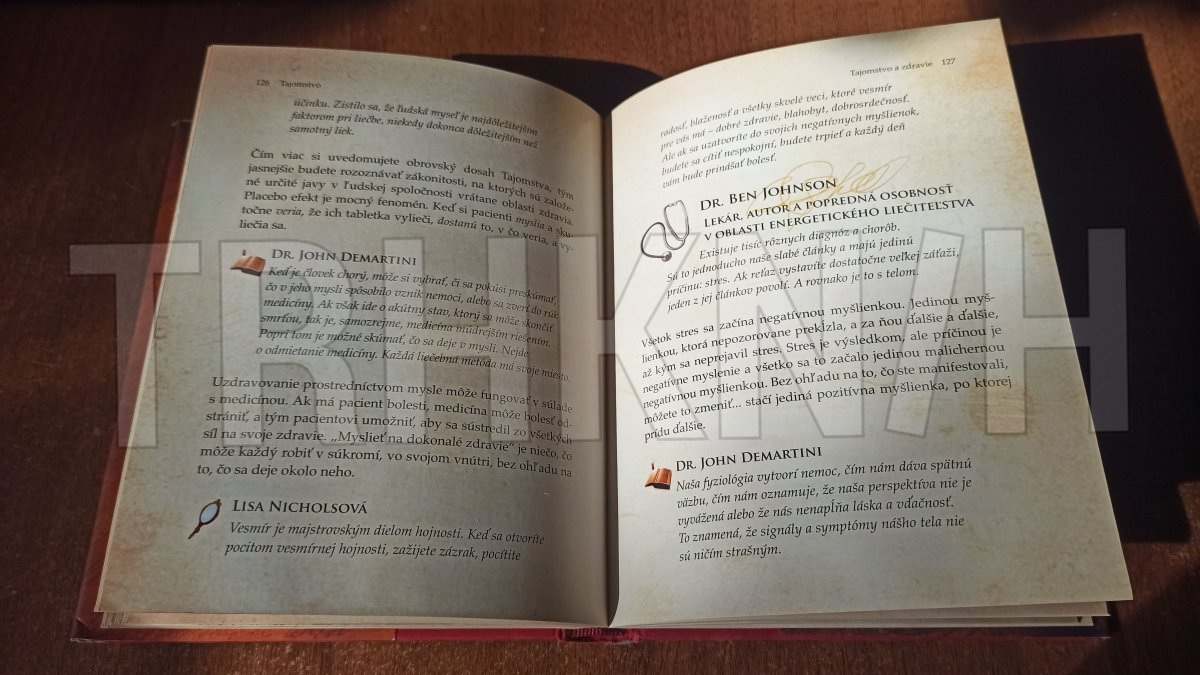 126 Tajomstvo
účinku. Zistilo sa, že ľudská myseľ je najdôležitejším
faktorom pri liečbe, niekedy dokonca dôležitejším než
samotný liek.
Čím viac si uvedomujete obrovský dosah Tajomstva, tým
jasnejšie budete rozoznávať zákonitosti, na ktorých sú založe-
né určité javy v ľudskej spoločnosti vrátane oblasti zdravia.
Placebo efekt je mocný fenomén. Keď si pacienti myslia a sku-
točne veria, že ich tabletka vylieči, dostanú to, v čo veria, a vy-
liečia sa.
DR. JOHN DEMARTINI
Keď je človek chorý, môže si vybrať, či sa pokúsi preskúmať,
čo v jeho mysli spôsobilo vznik nemoci, alebo sa zverí do rúk
medicíny. Ak však ide o akútny stav, ktorý sa môže skončiť
smrťou, tak je, samozrejme, medicína múdrejším riešením.
Popri tom je možné skúmať, čo sa deje v mysli. Nejde
o odmietanie medicíny. Každá liečebná metóda má svoje miesto.
Uzdravovanie prostredníctvom mysle môže fungovať v súlade
s medicínou. Ak má pacient bolesti, medicína môže bolesť od-
strániť, a tým pacientovi umožniť, aby sa sústredil zo všetkých
síl na svoje zdravie. „Myslieť na dokonalé zdravie“ je niečo, čo
môže každý robiť v súkromí, vo svojom vnútri, bez ohľadu na
to, čo sa deje okolo neho.
LISA NICHOLSOVÁ
Vesmír je majstrovským dielom hojnosti. Keď sa otvoríte
pocitom vesmírnej hojnosti, zažijete zázrak, pocítite
Tajomstvo a zdravie 127
radosť, blaženosť a všetky skvelé veci, ktoré vesmír
pre vás má – dobré zdravie, blahobyt, dobrosrdečnosť.
Ale ak sa uzatvoríte do svojich negatívnych myšlienok,
budete sa cítiť nespokojní, budete trpieť a každý deň
vám bude prinášať bolesť.
DR. BEN JOHNSON
LEKÁR, AUTOR A POPREDNÁ OSOBNOSŤ
V OBLASTI ENERGETICKÉHO LIEČITEĽSTVA
Existuje tisíc rôznych diagnóz a chorôb.
Sú to jednoducho naše slabé články a majú jedinú
príčinu: stres. Ak reťaz vystavíte dostatočne veľkej záťaži,
jeden z jej článkov povolí. A rovnako je to s telom.
Všetok stres sa začína negatívnou myšlienkou. Jedinou myš-
lienkou, ktorá nepozorovane prekĺzla, a za ňou ďalšie a ďalšie,
až kým sa neprejavil stres. Stres je výsledkom, ale príčinou je
negatívne myslenie a všetko sa to začalo jedinou malichernou
negatívnou myšlienkou. Bez ohľadu na to, čo ste manifestovali,
môžete to zmeniť... stačí jediná pozitívna myšlienka, po ktorej
prídu ďalšie.
DR. JOHN DEMARTINI
Naša fyziológia vytvorí nemoc, čím nám dáva spätnú
väzbu, čím nám oznamuje, že naša perspektíva nie je
vyvážená alebo že nás nenapĺňa láska a vďačnosť.
To znamená, že signály a symptómy nášho tela nie
sú ničím strašným.